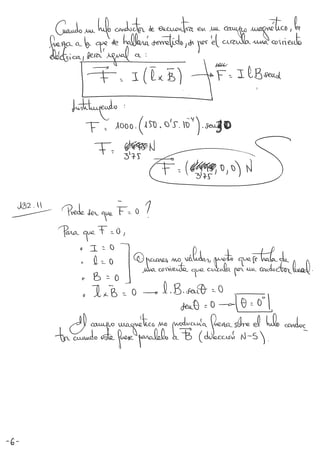 Cuando un hilo conductor se encuentra en un campo magnético, la
fuerza a la que se hallará sometido, si por él circula una corriente
eléctrica, será igual a :
F = I (l x B) → F = I l B senα
Sustituyendo :
F = 1000 · (150 · 0'5 · 10⁻⁴) · sen
F = 3'75 N
F = (3'75, 0, 0) N
132.11 Puede ser que F = 0 ?
Para que F = 0,
• I = 0
• l = 0
• B = 0
Opciones no válidas, puesto que se trata de
una corriente que circula por un conductor lineal.
• l x B = 0 → l · B · senθ = 0
senθ = 0 → θ = 0°
El campo magnético no produciría fuerza sobre el hilo conduc
tor cuando este fuese paralelo a B (dirección N-S).
-6-